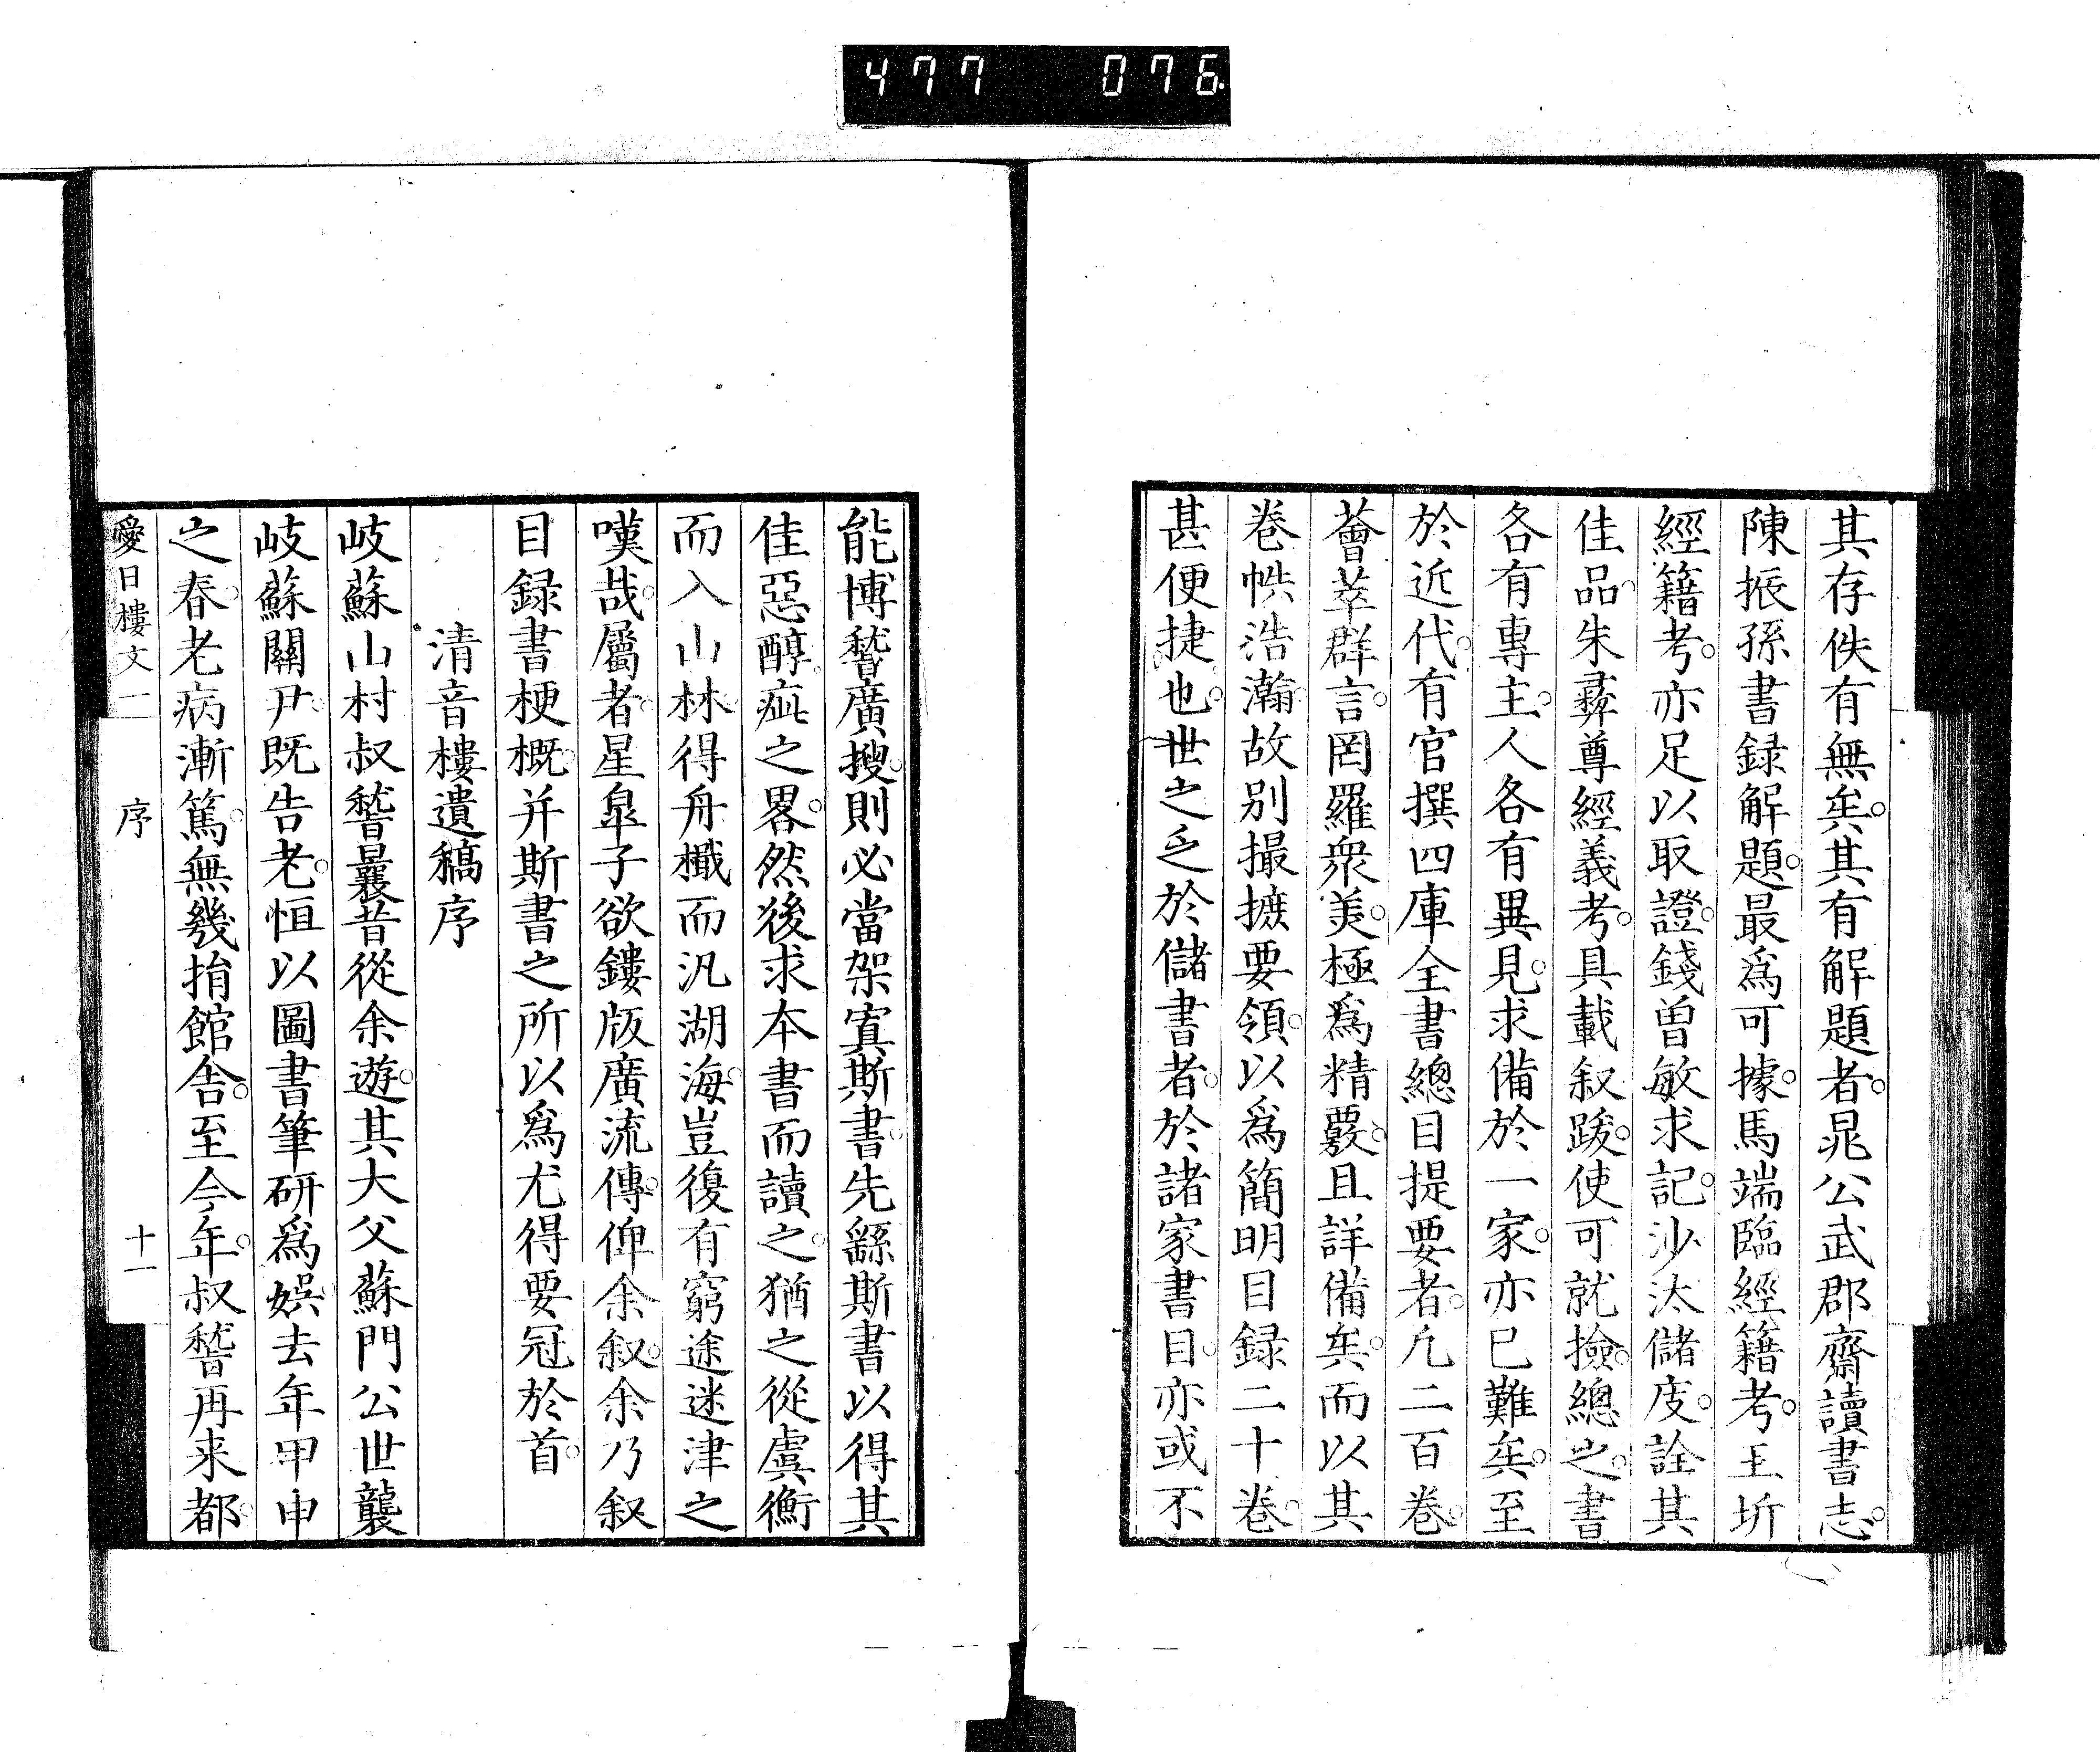 477 076
其存佚有無矣。其有解題者。晁公武郡齋讀書志。
陳振孫書録解題。最爲可據。馬端臨經籍考。王圻
經籍考。亦足以取證。錢曽敏求記。沙汰儲庋。詮其
佳品。朱彝尊經義考。具載叙跋。使可就撿。總之。書
各有專主。人各有異見。求備於一家。亦已難矣。至
於近代。有官撰四庫全書總目提要者。凢二百卷。
薈萃群言。罔羅衆美。極爲精覈。且詳備矣。而以其
卷帙浩瀚。故別撮摭要領。以爲簡明目録二十卷。
甚便捷也。世之乏於儲書者。於諸家書目。亦或不
能博稽廣搜。則必當架寘斯書。先繇斯書以得其
佳惡醇疵之畧。然後求本書而讀之。猶之從虞衡
而入山林。得舟檝而汎湖海。豈復有窮途迷津之
嘆哉。屬者。星皐子欲鏤版廣流傳。俾余叙。余乃叙
目録書梗概。并斯書之所以爲尤得要冠於首。
清音樓遺稿序
岐蘇山村叔嵆曩昔從余遊。其大父蘇門公世襲
岐蘇關尹。既告老。恒以圖書筆研爲娯。去年甲申
之春。老病漸篤。無幾捐館舍。至今年。叔嵆再来都。
愛日樓文一 序 十一